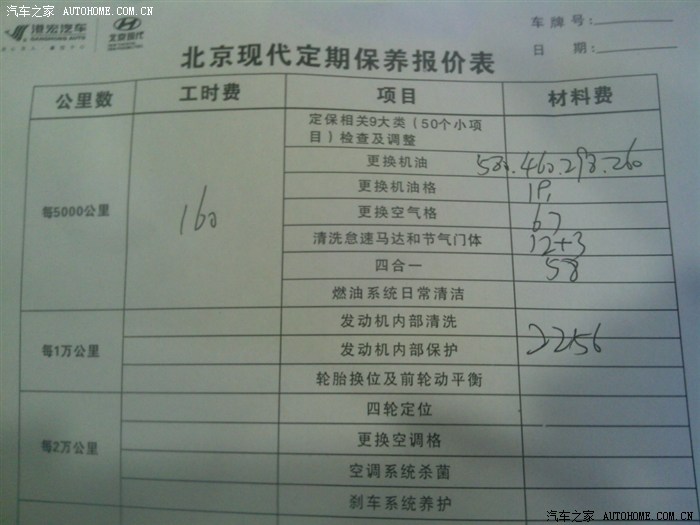 汽车之家 AUTOHOME.COM.CN
港宏汽车 北京现代
车牌号:
日 期:
北京现代定期保养报价表
公里数 工时费 项目 材料费
定保相关9大类(50个小项
目)检查及调整
更换机油 580.460.298.260
每5000公里 160 更换机油格 19.
更换空气格 67
清洗怠速马达和节气门体 12+3
四合一 58
燃油系统日常清洁
发动机内部清洗
每1万公里 发动机内部保护 2256
轮胎换位及前轮动平衡
四轮定位
每2万公里 更换空调格
空调系统杀菌
刹车系统养护
汽车之家 AUTOHOME.COM.CN